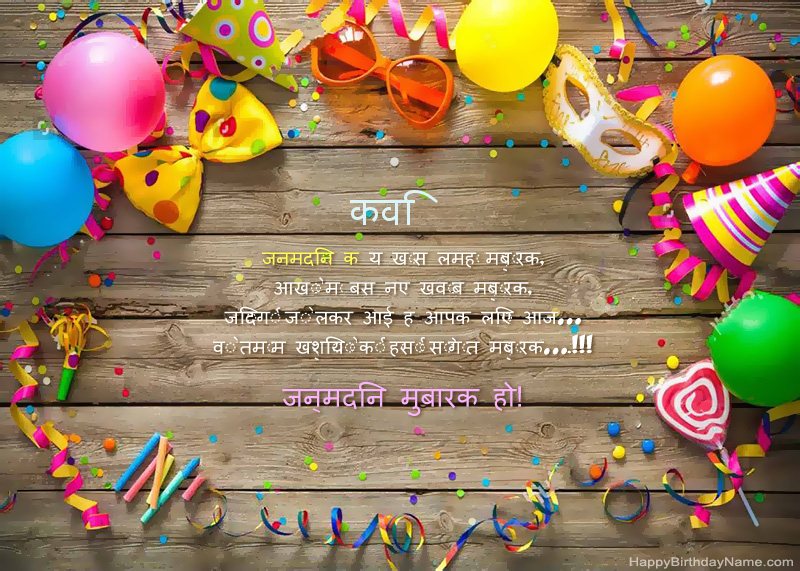 कवि
जनमदिन क य खास लमह मबारक,
आखों म बस नए खवाब मबारक,
जिंदगी जो लेकर आई ह आपक लिए आज...
वो तमाम खुशियों की हसीं सौगात मबारक...!!!
जन्मदिन मुबारक हो!
HappyBirthdayName.com